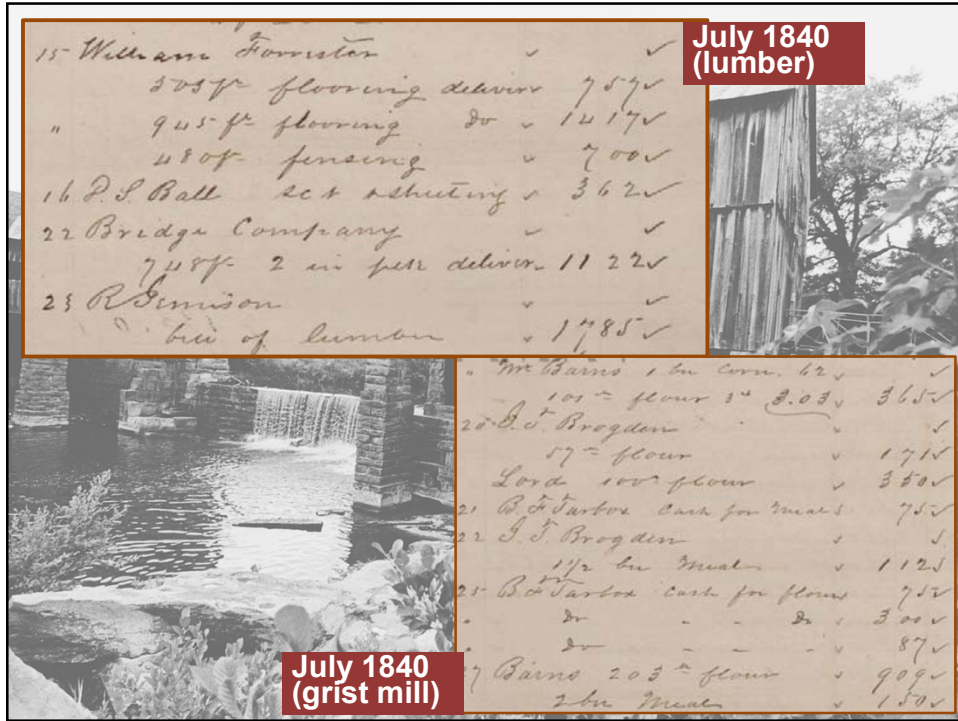 July 1840
(lumber)
15 William Forrister ✓ ✓
505 ft flooring deliver ✓ 757 ✓
" 945 ft flooring do ✓ 1417 ✓
480 ft fensing ✓ 700 ✓
16 P. S. Ball sct & sheeting ✓ 362 ✓
22 Bridge Company ✓ ✓
748 ft 2 in deliver 1122 ✓
23 R Jemison ✓ ✓
bill of lumber ✓ 1785 ✓
" Mr Barns 1 bu corn .62 ✓ ✓
101 flour 3.03 ✓ 365 ✓
20 J. T. Brogden ✓ ✓
57 flour ✓ 171 ✓
Lord 100 flour ✓ 350 ✓
21 B. F Tarbox Cash for Meal ✓ 75 ✓
22 J. T. Brogden ✓ ✓
1 1/2 bu Meal ✓ 112 ✓
25 B F Tarbox Cash for flour ✓ 75 ✓
" do - - do ✓ 300 ✓
" do - - - ✓ 87 ✓
27 Barns 203 flour ✓ 909 ✓
2 bu Meal ✓ 150 ✓
July 1840
(grist mill)